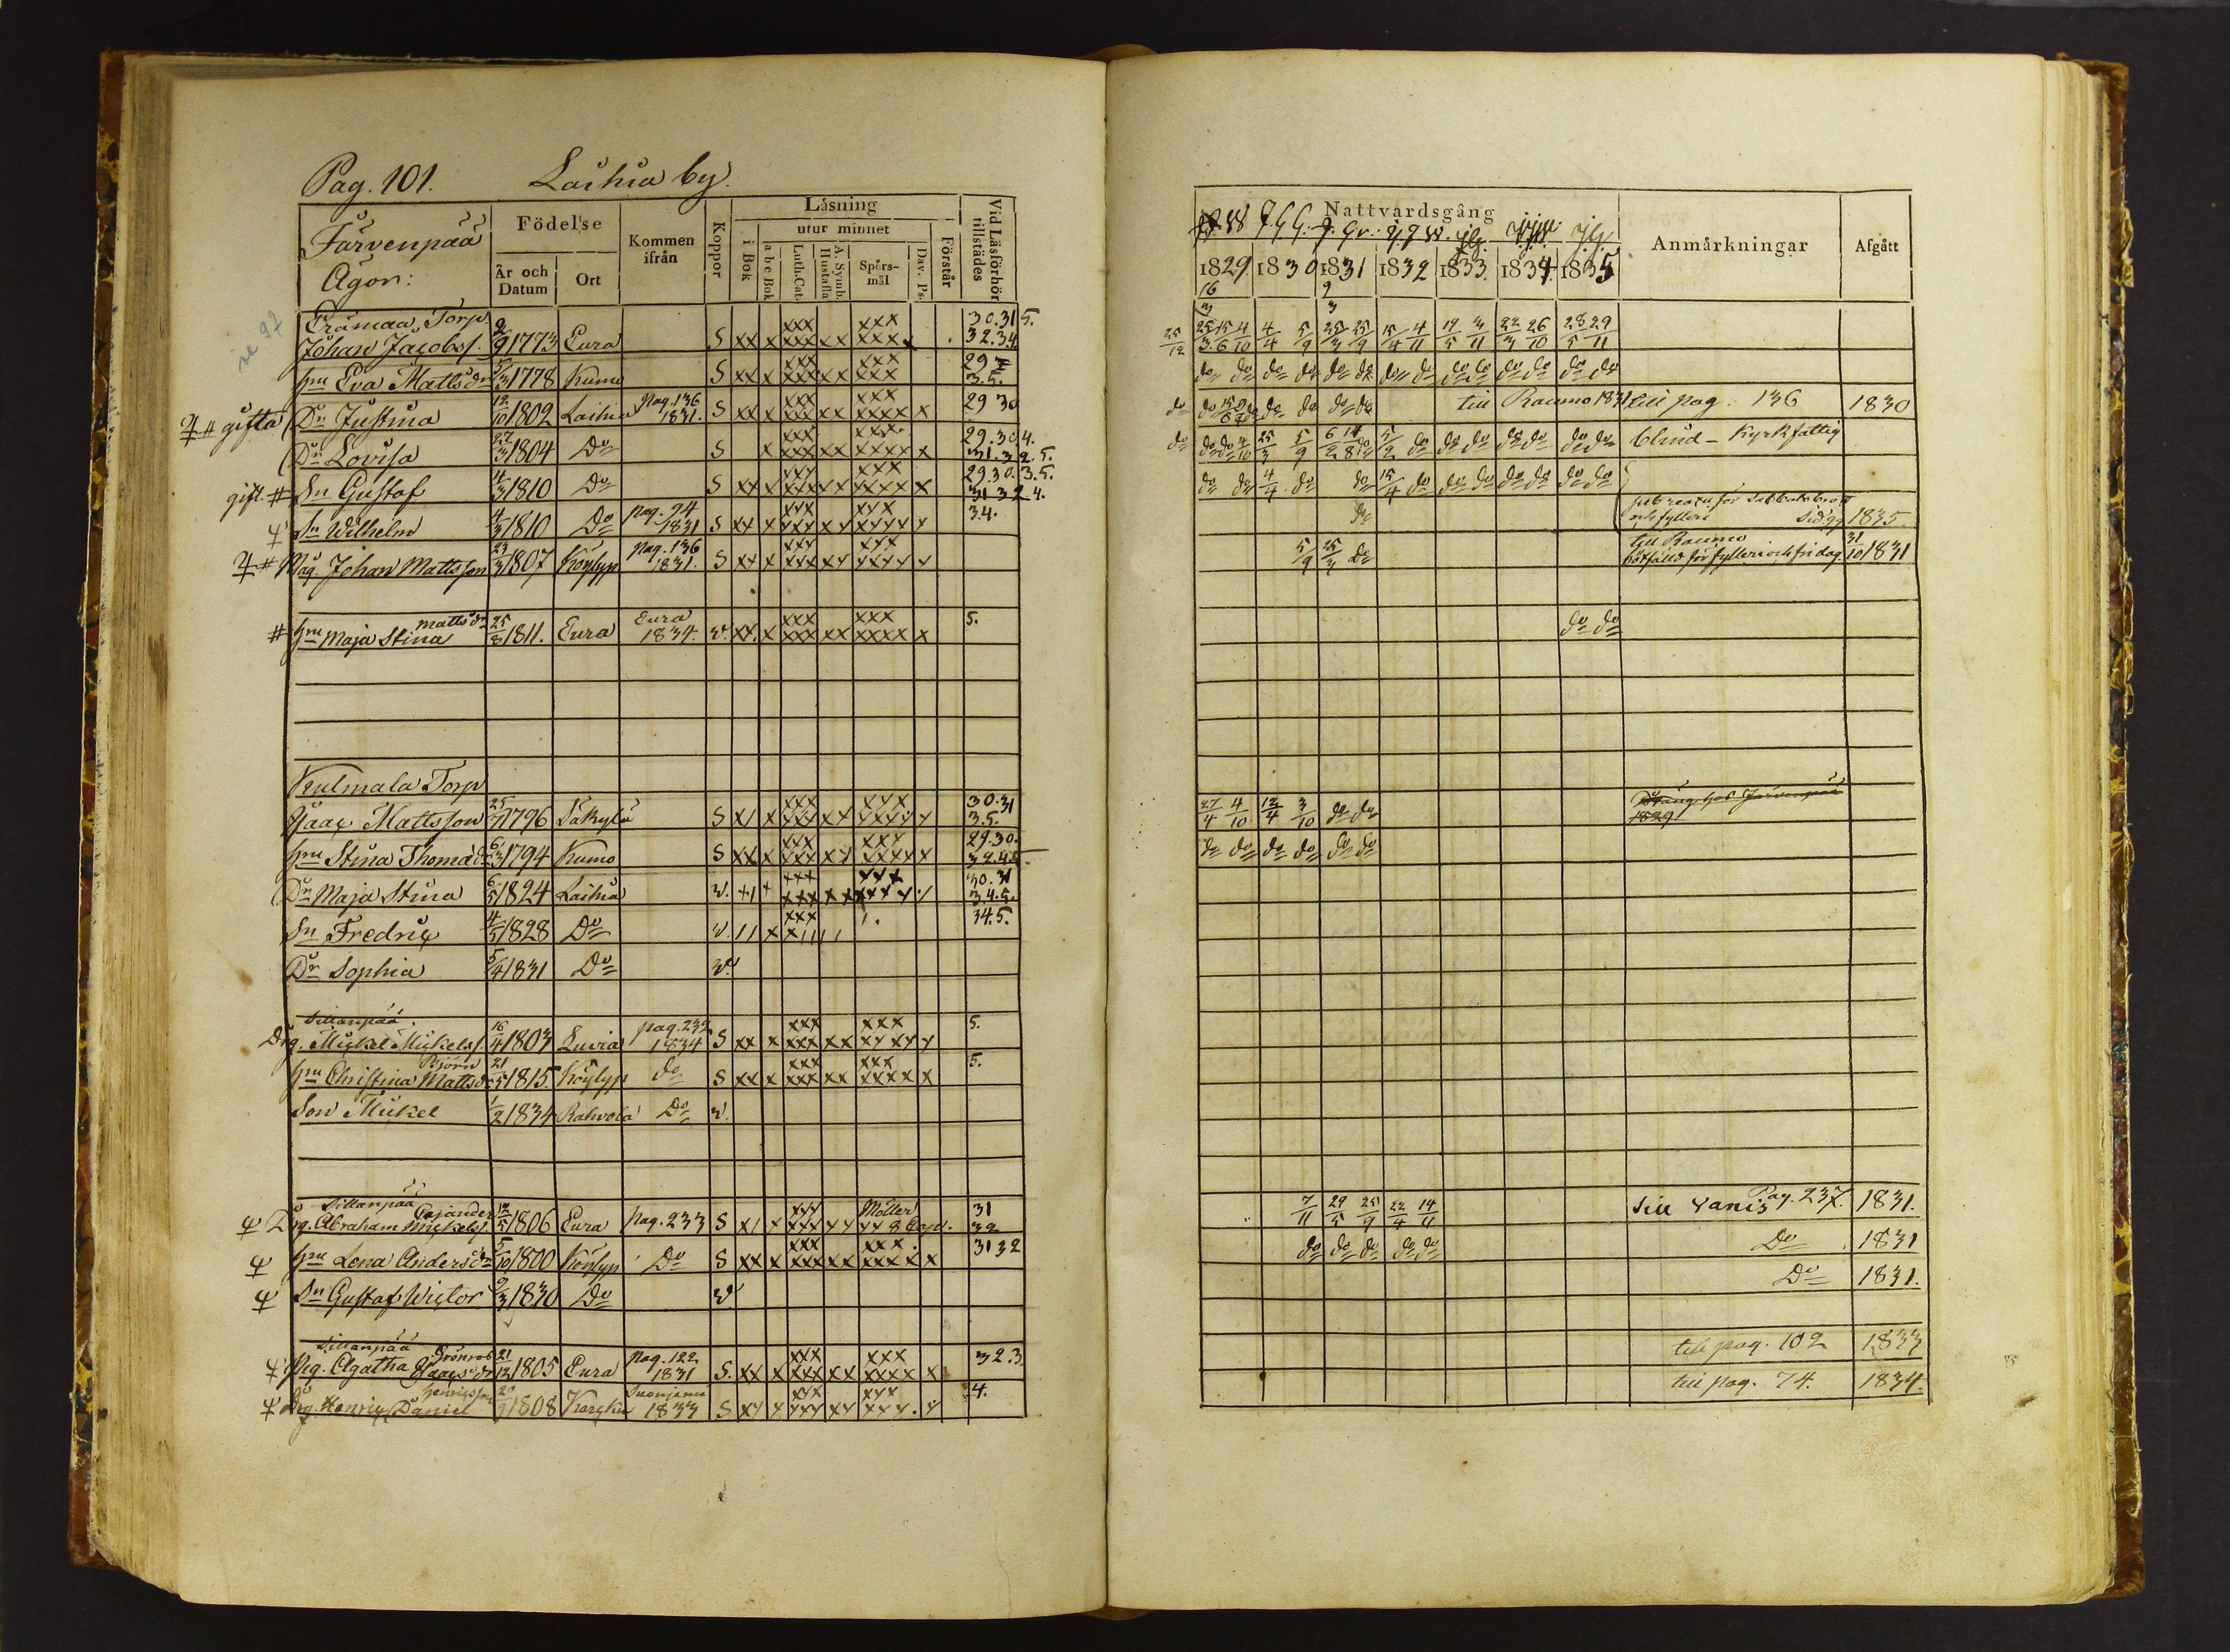 Pag. 101. Laihia by.
Järvenpää
Ägor:
Födelse
År och Datum
Ort
Kommen ifrån
Koppor
Läsning
i Bok
utur minnet
a b c Bok
Luth. Cat.
A. Symb. Hustafla
Spörs-mål
Dav. Ps.
Förstår
Vid Läsförhör tillstädes
Torp
Johan Jacobss. 2/9 1773 Eura S xx x xxx xxx xx xxx xxxx 30.31 5. 32.34
Hru Eva Mattsdr 5/3 1778 Kumo S xx x xxx xxx xx xxx xxx 29 3.5.
gifta Dr Justina 12/10 1802 Laihia Pag. 136 1831. S xx x xxx xxx xx xxx xxxx x 29 30
Dr Lovisa 27/3 1804 Do S x xxx xxx xx xxx xxxx x 29.30 4. 31.32.5.
gift # Sn Gustaf 4/3 1810 Do S xx x xxx xxx xx xxx xxxx x 29.30.3.5. 31 32 4.
Sn Wilhelm 4/3 1810 Do pag. 94 1831 S xx x xxx xxx xx xxx xxxx x 3.4.
Johan Mattsson 23/3 1807 Köylyp Pag. 136 1831. S xx x xxx xxx xx xxx xxxx x
# Hru Maja Stina Mattsdr 25/8 1811. Eura Eura 1834. v. xx. x xxx xxx xx xxx xxxx x 5.
Kulmala Torp
Isaac Mattsson 25/ 1796 Säkylä S x/ x xxx xxx xx xxx xxxx x 30.31 3.5.
Hru Stina Thomædr 6/3 1794 Kumo S xx x xxx xxx xx xxx xxxx x 29.30. 32.4.
Dr Maja Stina 6/5 1824 Laihia v. 30.31 3.4.5.
Sn Fredric 4/5 1828 Do v. // x xxx 34.5.
Dr Sophia 5/4 1831 Do v.
Sillanpää
Drg. Mickel Mickelss. 16/4 1803 Luvia pag. 232 1834 S xx x xxx xxx xx xxx xx xx x 5.
Hru Christina Mattsdr Björn 21/5 1815. Köylyp do S xx x xxx xxx xx xxx xxxx x 5.
Son Mickel 1/2 1834 Rahvola Do v.
Sillanpää
Drg. Abraham Mickelss. Cajander 12/5 1806 Eura Pag. 233 S x/ x xxx xxx xx Möller xx 8 Capl. 31 32
Hru Lena Andersdr 5/10 1800 Köylyp Do S xx x xxx xxx xx xxx xxxx x 31 32
Sn Gustaf Victor 9/3 1830 Do v
Sillanpää
Pig. Agatha Isaacsdr Grönroos 21/12 1805 Eura Pag. 122 1831 S. xx x xxx xxx xx xxx xxxx x 32.3.
Drg. Henric Daniel Henricsson 1808 1833 S xx x xxx xxx xx xxx xxx. x 4.
Nattvardsgång
Anmärkningar
Afgått
1829. 1830 1831 1832 1833. 1834. 1835
25/12 16/3 25/3 15/6 4/10 4/4 5/9 9/3 25/3 25/9 15/4 4/11 19/5 3/11 22/3 26/10 28/5 29/11
do do do do do do do do do do do do do do
till Raumo 1831 till pag. 136 1830
Blind - Kyrkfattig
sabbatsbrott och fylleri 1835.
till Raumo
bötfälld för fylleri och fridag. 31/10 1831
do do
27/4 4/10 12/4 3/10 do do
Dräng hos Järvenpää 1829
do do do do do do
7/11 29/5 25/9 22/4 14/11 till Vanis Pag. 237. 1831.
do do do do do Do 1831
Do 1831.
till pag. 102 1833
till pag. 74. 1834.